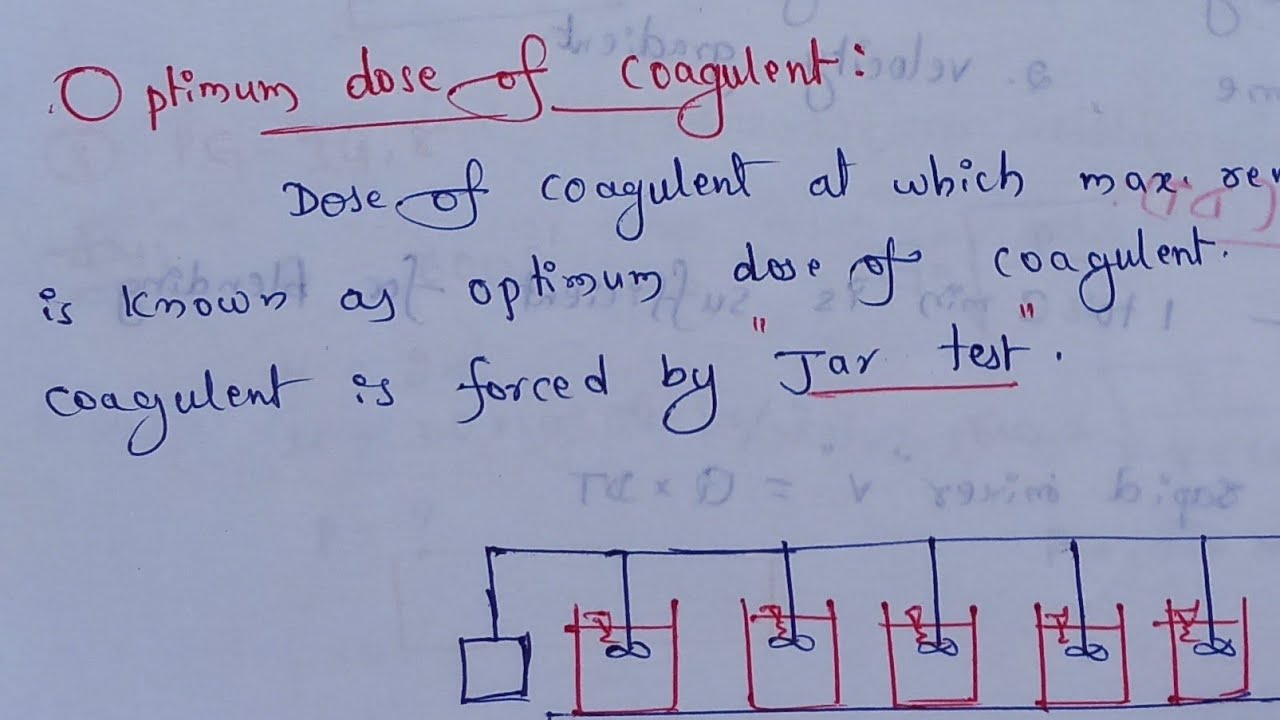 Optimum dose of coagulent:
Dose of coagulent at which max. rem
is known as optimum dose of coagulent.
coagulent is forced by "Jar test".